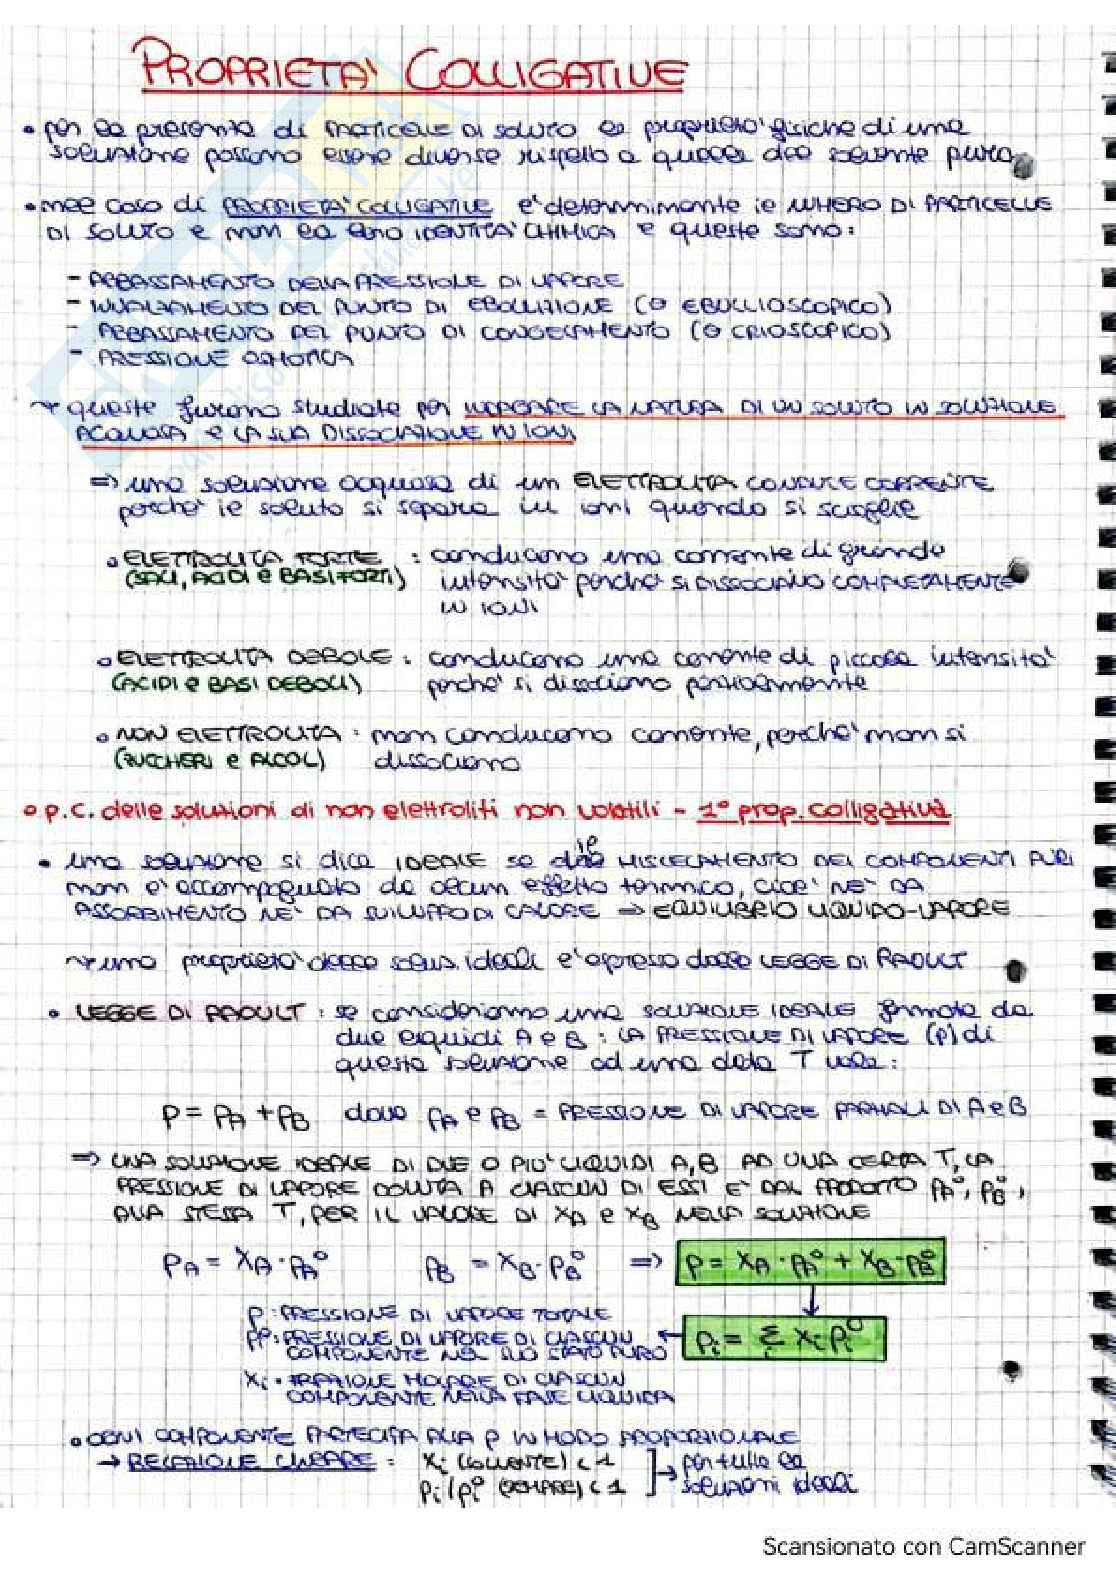 PROPRIETA' COLLIGATIVE
• per la presenza di PARTICELLE DI SOLUTO le proprietà fisiche di una
soluzione possono essere diverse rispetto a quelle del solvente puro
• nel caso di PROPRIETA' COLLIGATIVE e' determinante il NUMERO DI PARTICELLE
DI SOLUTO e non la loro IDENTITA' CHIMICA e queste sono:
- ABBASSAMENTO DELLA PRESSIONE DI VAPORE
- INNALZAMENTO DEL PUNTO DI EBOLLIZIONE (O EBULLIOSCOPICO)
- ABBASSAMENTO DEL PUNTO DI CONGELAMENTO (O CRIOSCOPICO)
- PRESSIONE OSMOTICA
~ queste furono studiate per INDAGARE LA NATURA DI UN SOLUTO IN SOLUZIONE
ACQUOSA e LA SUA DISSOCIAZIONE IN IONI
=> una soluzione acquosa di un ELETTROLITA CONDUCE CORRENTE
perche' il soluto si separa in ioni quando si scioglie
o ELETTROLITA FORTE : conducono una corrente di grande
(SALI, ACIDI e BASI FORTI) intensita' perche' SI DISSOCIANO COMPLETAMENTE
IN IONI
o ELETTROLITA DEBOLE : conducono una corrente di piccola intensita'
(ACIDI e BASI DEBOLI) perche' si dissociano parzialmente
o NON ELETTROLITA : non conducono corrente, perche' non si
(ZUCCHERI e ALCOL) dissociano
o p.c. delle soluzioni di non elettroliti non volatili - 1° prop. colligativa
• una soluzione si dice IDEALE se il MISCELAMENTO DEI COMPONENTI PURI
non e' accompagnato da alcun effetto termico, cioe' NE' DA
ASSORBIMENTO NE' DA SVILUPPO DI CALORE → EQUILIBRIO LIQUIDO-VAPORE
~ una proprieta' delle soluz. ideali e' espressa dalla LEGGE DI RAOULT
• LEGGE DI RAOULT : se consideriamo una SOLUZIONE IDEALE formata da
due liquidi A e B : LA PRESSIONE DI VAPORE (P) di
questa soluzione ad una data T vale:
P = PA + PB dove PA e PB = PRESSIONE DI VAPORE PARZIALI DI A e B
=> UNA SOLUZIONE IDEALE DI DUE O PIU' LIQUIDI A, B AD UNA CERTA T, LA
PRESSIONE DI VAPORE DOVUTA A CIASCUN DI ESSI E' DAL PRODOTTO PA°, PB°,
ALLA STESSA T, PER IL VALORE DI XA e XB NELLA SOLUZIONE
PA = XA · PA° PB = XB · PB° => P = XA · PA° + XB · PB°
P : PRESSIONE DI VAPORE TOTALE
Pi° : PRESSIONE DI VAPORE DI CIASCUN ← Pi = Σ Xi Pi°
COMPONENTE NEL SUO STATO PURO
Xi · FRAZIONE MOLARE DI CIASCUN
COMPONENTE NELLA FASE LIQUIDA
• OGNI COMPONENTE PARTECIPA ALLA P IN MODO PROPORZIONALE
→ RELAZIONE LINEARE : Xi (SOLVENTE) < 1 per tutte le
Pi/Pi° (SEMPRE) < 1 → soluzioni ideali
Scansionato con CamScanner